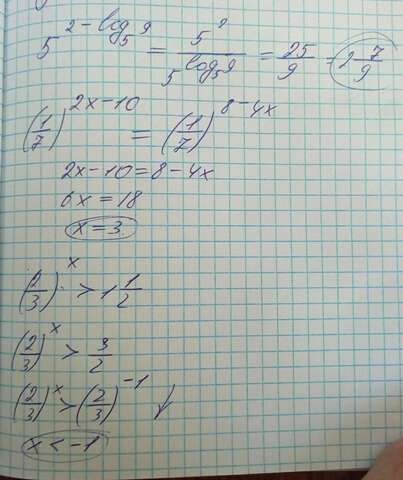 5^{2-log_5 9} = 5^2 / 5^{log_5 9} = 25/9 = 2 7/9
(1/7)^{2x-10} = (1/7)^{8-4x}
2x-10=8-4x
6x=18
x=3
(2/3)^x > 1 1/2
(2/3)^x > 3/2
(2/3)^x > (2/3)^{-1} ↓
x < -1